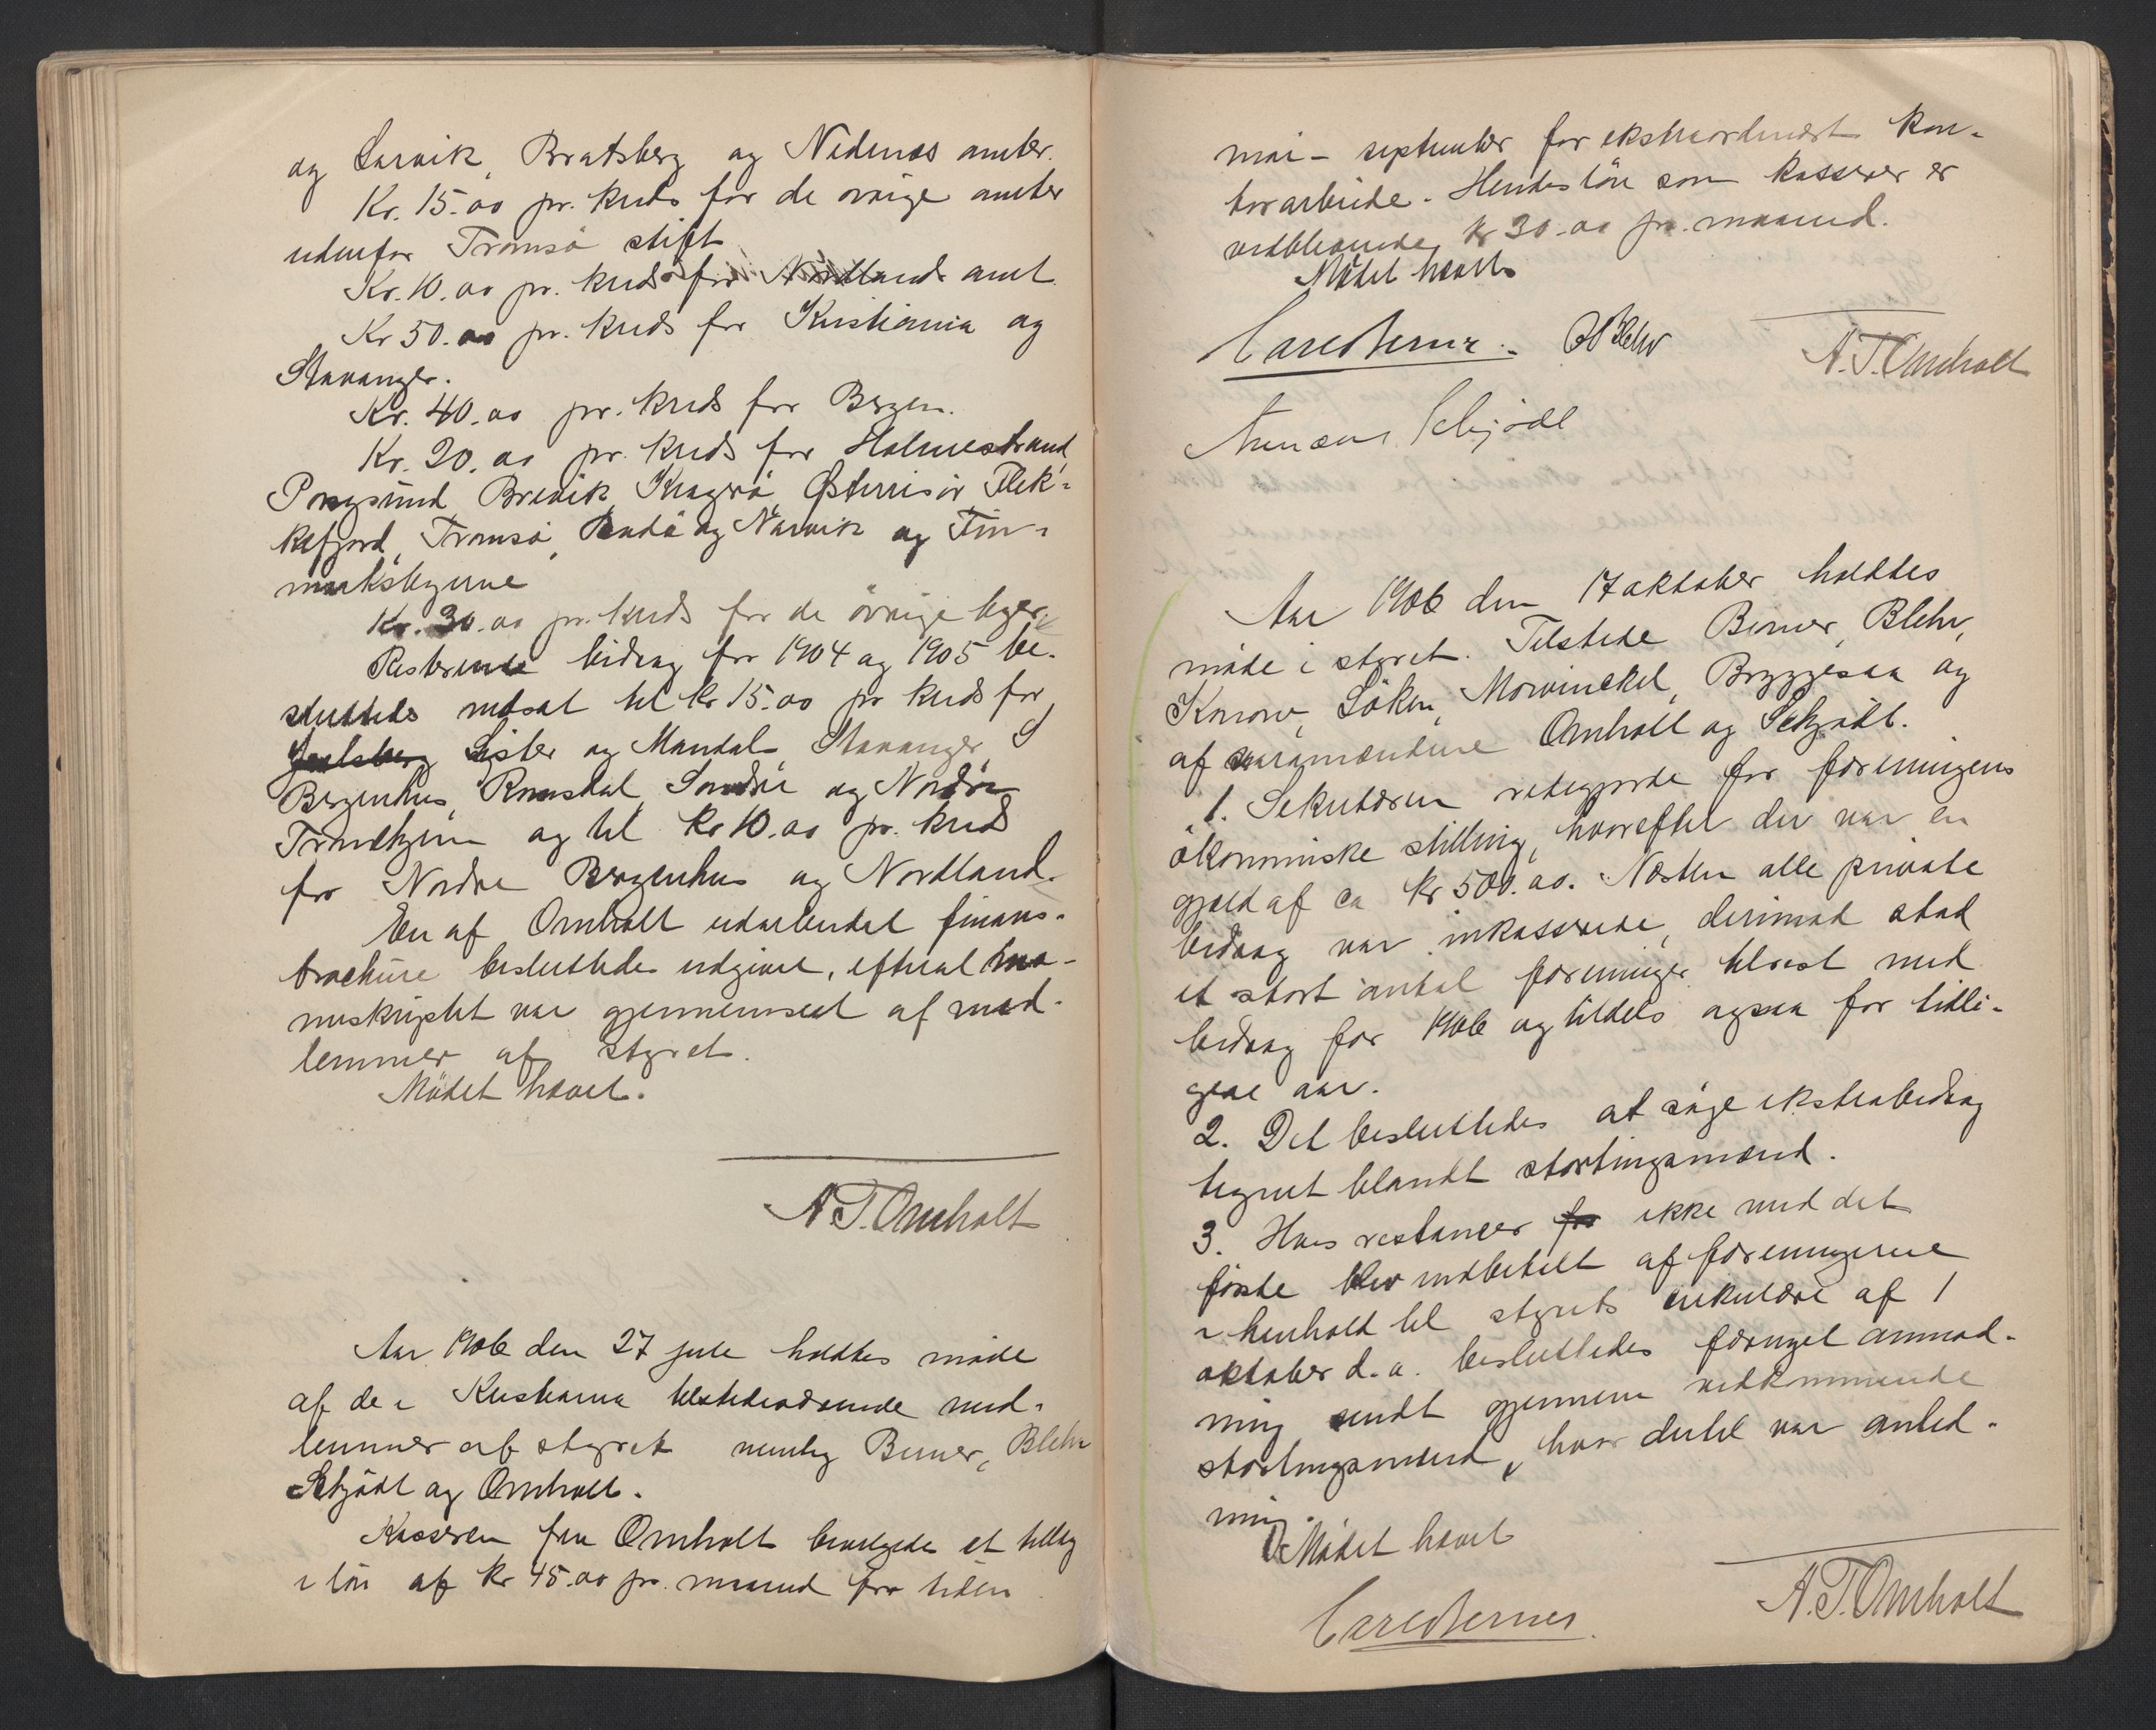 og Larvik, Bratsberg og Nedenæs amter.
Kr. 15.00 pr. kreds for de øvrige amter
udenfor Tromsö stift
Kr. 10.00 pr. kreds for Nordlands amt
Kr 50.00 pr. kreds for Kristiania og
Stavanger.
Kr. 40.00 pr. kreds for Bergen.
Kr. 20.00 pr. kreds for Holmestrand,
Porsgrund, Brevik, Kragerö, Østerrisör, Flek-
kefjord, Tromsö, Bodö og Narvik og Fin-
marksbyerne
Kr. 30.00 pr. kreds for de övrige byer.
Resterende bidrag for 1904 og 1905 be-
sluttedes nedsat til kr 15.00 pr kreds for
Jarlsberg Lister og Mandal, Stavanger, S
Bergenhus, Romsdal, Söndre og Nordre
Trondhjem og til kr 10.00 pr. kreds
for Nordre Bergenhus og Nordland.
En af Omholt udarbeidet finans-
brochure besluttedes udgivet, efterat ma-
nuskriptet var gjennemseet af med-
lemmer af styret.
Mödet hævet.
A.T. Omholt
Aar 1906 den 27 juli holdtes möde
af de i Kristiania tilstedeværende med-
lemmer af styret nemlig Berner, Blehr
Schjödt og Omholt.
Kasseren fru Omholt bevilgedes et tillæg
i lön af kr 45.00 pr. maaned for tiden
mai - september for ekstraordinært kon-
torarbeide. Hendes lön som kasserer er
vedblivende kr 30.00 pr. maaned.
Mödet hævet
Carl Berner. O Blehr
A.T. Omholt
Annæus Schjödt
Aar 1906 den 17 oktober holdtes
möde i styret. Tilstede Berner, Blehr,
Konow, Löken, Mowinckel, Bryggesaa og
af varamændene Omholt og Schjödt.
1. Sekretæren redegjorde for foreningens
ökonomiske stilling, hvorefter der var en
gjæld af ca kr 500.00. Næsten alle private
bidrag var inkasserede, derimod stod
et stort antal foreninger tilrest med
bidrag for 1906 og tildels ogsaa for tidli-
gere aar.
2. Det besluttedes at söge ekstrabidrag
tegnet blandt stortingsmænd.
3. Hvis restancer for ikke med det
förste blev indbetalt af foreningerne
i henhold til styrets cirkulære af 1
oktober d.a. besluttedes fornyet anmod-
ning sendt gjennem vedkommende
stortingsmænd, hvor dertil var anled-
ning.
Mödet hævet
A.T. Omholt
Carl Berner